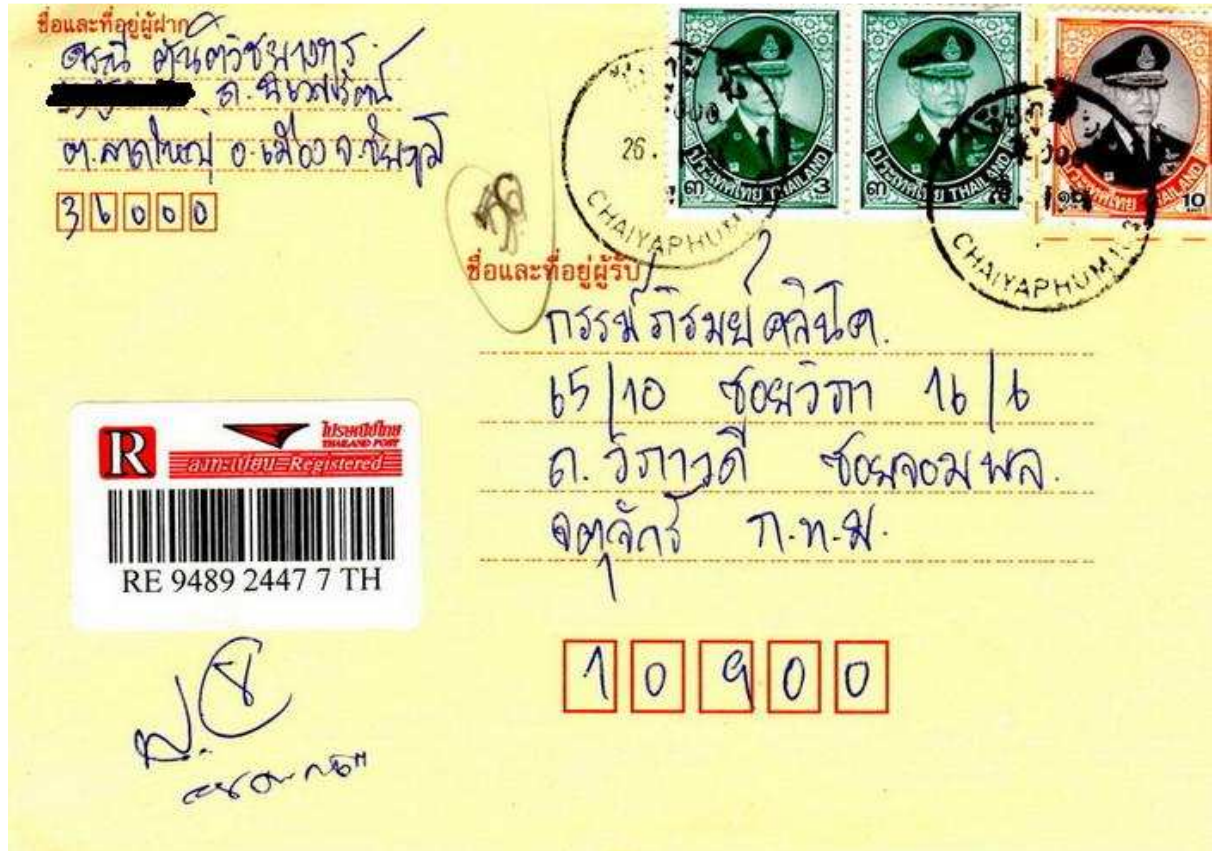 ชื่อและที่อยู่ผู้ฝาก
ดรุณี
ถ.นิเวศรัตน์
ต.ลาดใหญ่ อ.เมือง จ.ชัยภูมิ
36000
26.
CHAIYAPHUM
๓ ประเทศไทย THAILAND 3
๓ ประเทศไทย THAILAND
๑๐ ประเทศไทย THAILAND 10
CHAIYAPHUM
ชื่อและที่อยู่ผู้รับ
กรรมภิรมย์คลินิค.
65/10 ซอยวิภา 16/6
ถ.วิภาวดี ซอยจอมพล.
จตุจักร ก.ท.ม.
10900
R ไปรษณีย์ไทย
THAILAND POST
ลงทะเบียน Registered
RE 9489 2447 7 TH